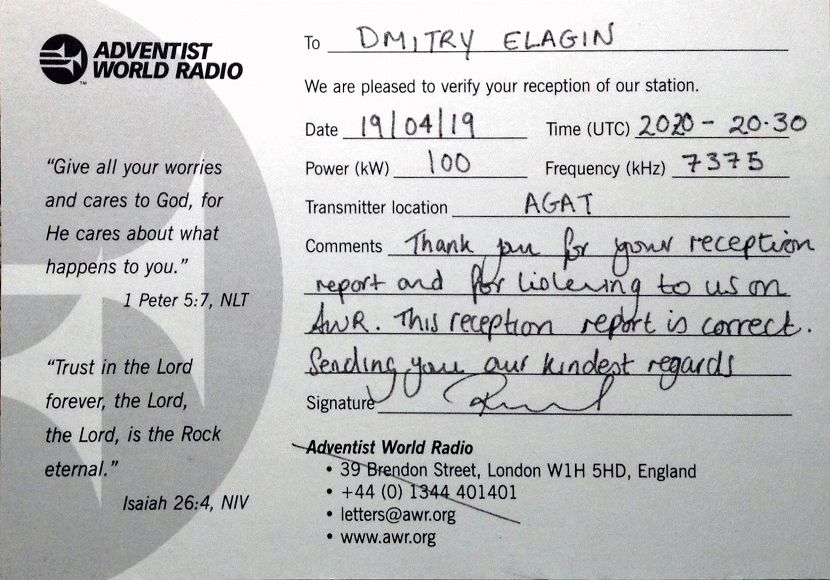 ADVENTIST
WORLD RADIO
™
To DMITRY ELAGIN
We are pleased to verify your reception of our station.
Date 19/04/19 Time (UTC) 2020 - 20.30
Power (kW) 100 Frequency (kHz) 7375
Transmitter location AGAT
Comments Thank you for your reception
report and for listening to us on
AWR. This reception report is correct.
Sending you our kindest regards
Signature
"Give all your worries
and cares to God, for
He cares about what
happens to you."
1 Peter 5:7, NLT
"Trust in the Lord
forever, the Lord,
the Lord, is the Rock
eternal."
Isaiah 26:4, NIV
Adventist World Radio
• 39 Brendon Street, London W1H 5HD, England
• +44 (0) 1344 401401
• letters@awr.org
• www.awr.org